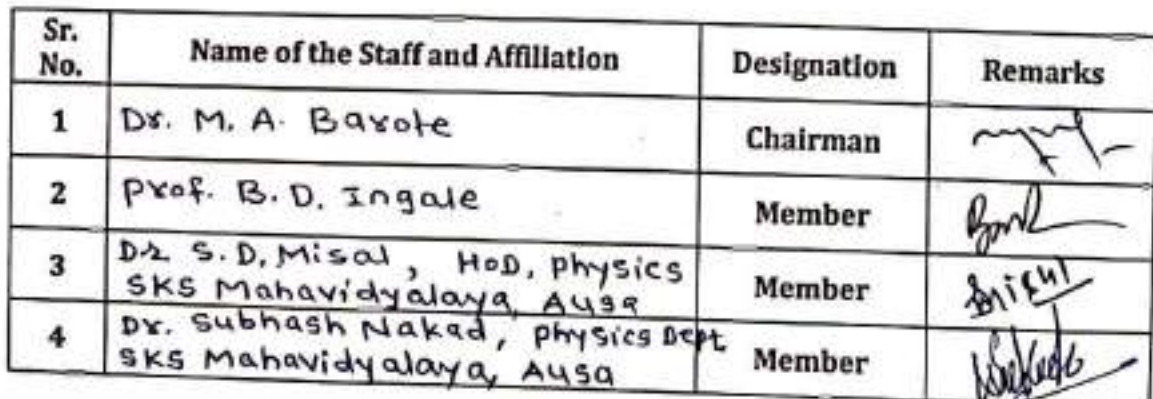 Sr. No. Name of the Staff and Affiliation Designation Remarks
1 Dr. M. A. Barote Chairman
2 Prof. B. D. Ingale Member
3 Dr S. D. Misal, HoD, Physics
SKS Mahavidyalaya, Ausa Member
4 Dr. Subhash Nakad, Physics Dept
SKS Mahavidyalaya, Ausa Member